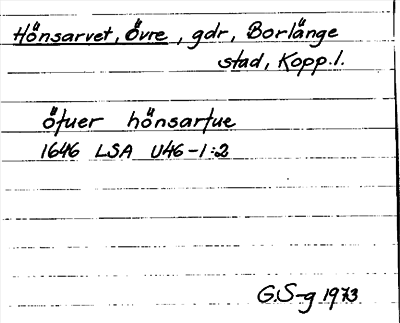 Hönsarvet, Övre, gdr, Borlänge
stad, Kopp.l.
öfuer hönsarfue
1646 LSA U46-1:2
G.S-g 1973